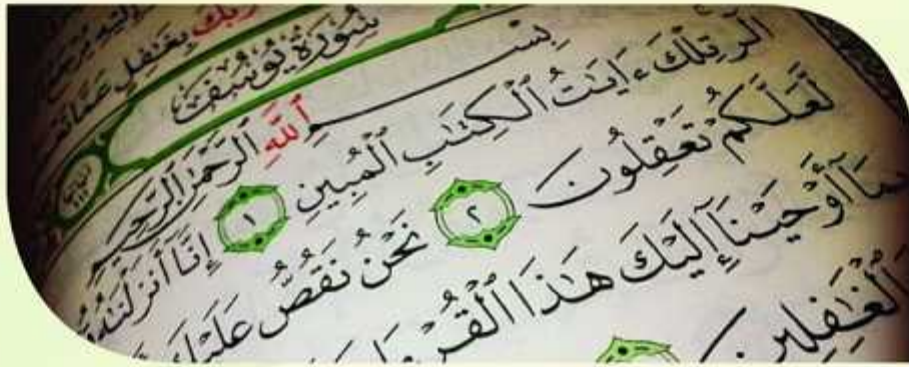 رَبُّكَ بِغَٰفِلٍ عَمَّا
سُورَةُ يُوسُفَ
بِسْمِ ٱللَّهِ ٱلرَّحْمَٰنِ ٱلرَّحِيمِ
الٓر تِلْكَ ءَايَٰتُ ٱلْكِتَٰبِ ٱلْمُبِينِ ١ إِنَّآ أَنزَلْنَٰهُ
لَعَلَّكُمْ تَعْقِلُونَ ٢ نَحْنُ نَقُصُّ عَلَيْكَ
بِمَآ أَوْحَيْنَآ إِلَيْكَ هَٰذَا
ٱلْغَٰفِلِينَ